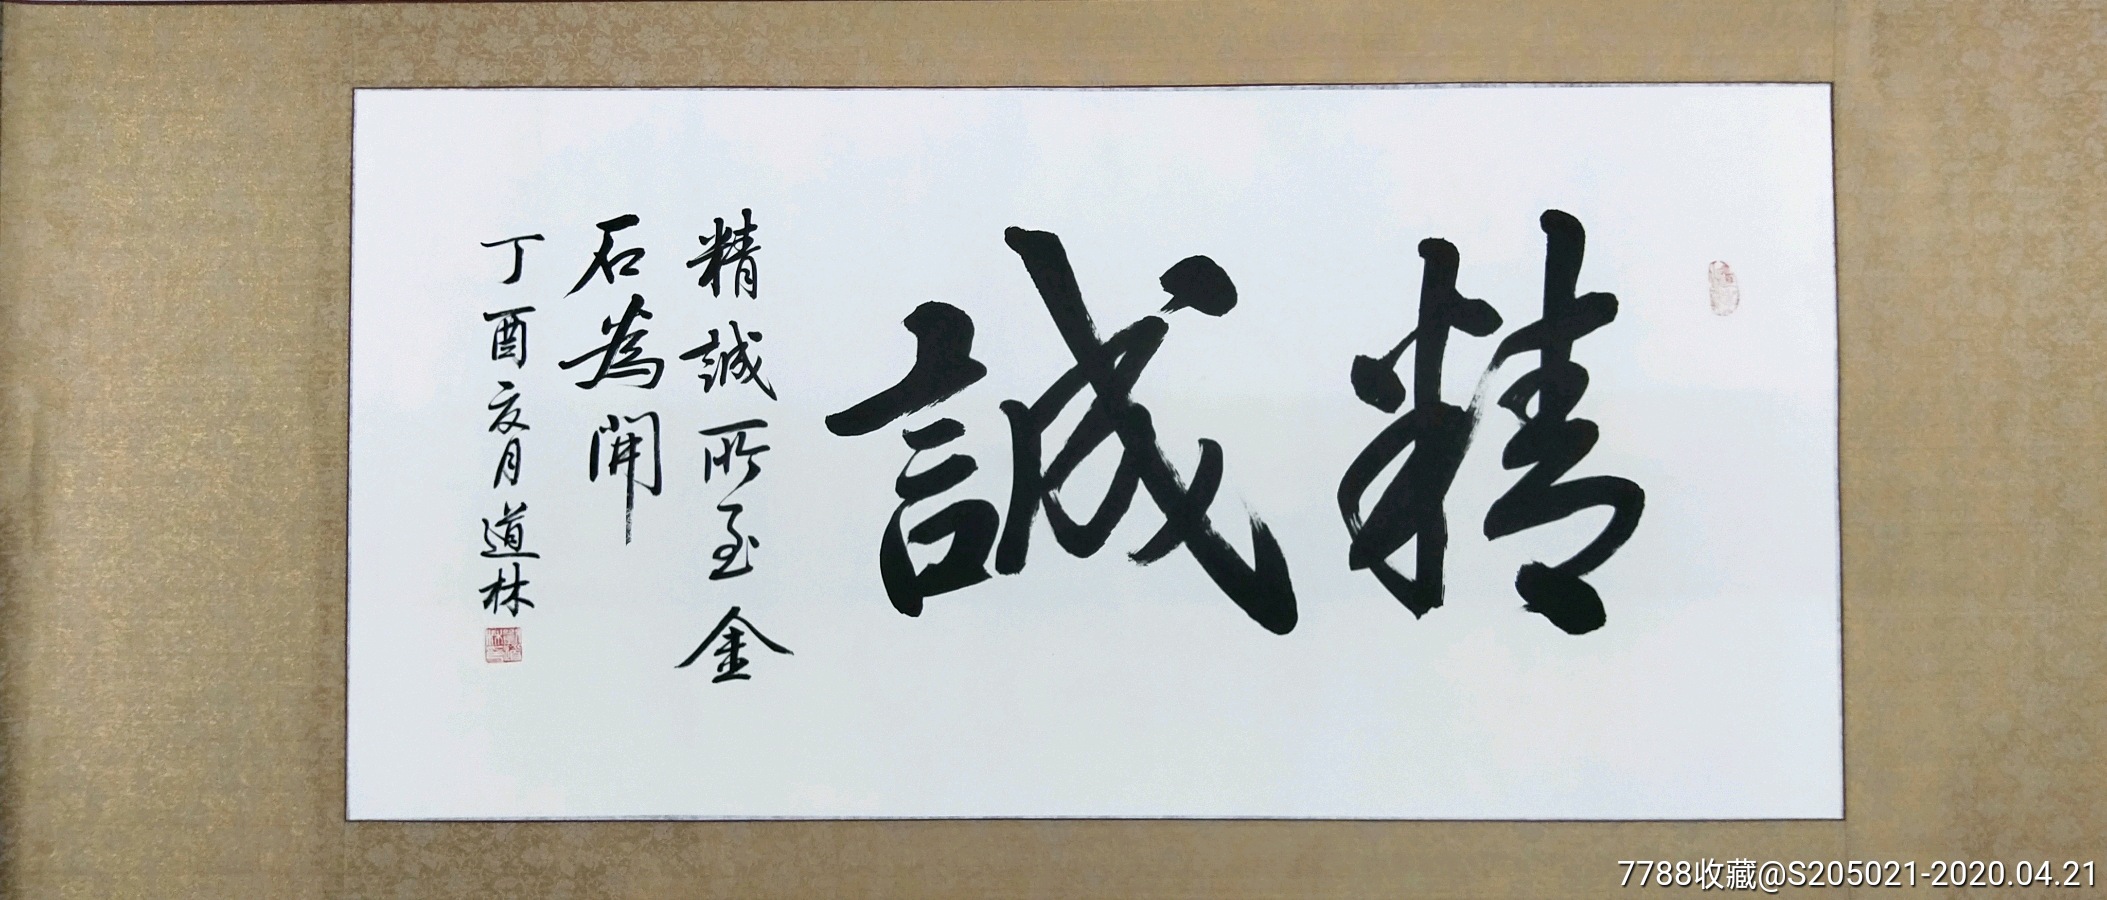 精誠
精誠所至金
石為開
丁酉亥月道林
7788收藏@S205021-2020.04.21